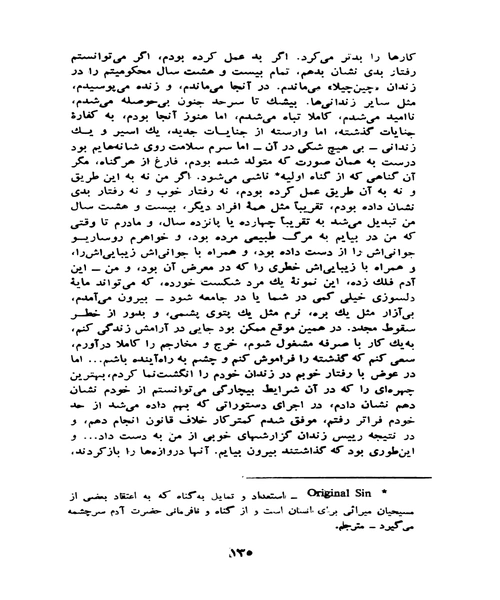 کارها را بدتر می‌کرد. اگر بد عمل کرده بودم، اگر می‌توانستم
رفتار بدی نشان بدهم، تمام بیست و هشت سال محکومیتم را در
زندان «چین‌چیلا» می‌ماندم. در آنجا می‌ماندم، و زنده می‌پوسیدم،
مثل سایر زندانی‌ها. بیشک تا سرحد جنون بی‌حوصله می‌شدم،
ناامید می‌شدم، کاملا تباه می‌شدم، اما هنوز آنجا بودم، به کفارهٔ
جنایات گذشته، اما وارسته از جنایات جدید، یک اسیر و یک
زندانی ــ بی هیچ شکی در آن ــ اما سرم سلامت روی شانه‌هایم بود
درست به همان صورت که متولد شده بودم، فارغ از هرگناه، مگر
آن گناهی که از گناه اولیه* ناشی می‌شود. اگر من نه به این طریق
و نه به آن طریق عمل کرده بودم، نه رفتار خوب و نه رفتار بدی
نشان داده بودم، تقریباً مثل همهٔ افراد دیگر، بیست و هشت سال
من تبدیل می‌شد به تقریباً چهارده یا پانزده سال، و مادرم تا وقتی
که من در بیایم به مرگ طبیعی مرده بود، و خواهرم روساریو
جوانی‌اش را از دست داده بود، و همراه با جوانی‌اش زیبایی‌اش‌را،
و همراه با زیبایی‌اش خطری را که در معرض آن بود، و من ــ این
آدم فلک زده، این نمونهٔ یک مرد شکست خورده، که می‌تواند مایهٔ
دلسوزی خیلی کمی در شما یا در جامعه شود ــ بیرون می‌آمدم،
بی‌آزار مثل یک بره، نرم مثل یک پتوی پشمی، و بدور از خطر
سقوط مجدد. در همین موقع ممکن بود جایی در آرامش زندگی کنم،
به‌یک کار با صرفه مشغول شوم، خرج و مخارجم را کاملا درآورم،
سعی کنم که گذشته را فراموش کنم و چشم به راه‌آینده باشم... اما
در عوض با رفتار خوبم در زندان خودم را انگشت‌نما کردم، بهترین
چهره‌ای را که در آن شرایط بیچارگی می‌توانستم از خودم نشان
دهم نشان دادم، در اجرای دستوراتی که بهم داده می‌شد از حد
خودم فراتر رفتم، موفق شدم کمترکار خلاف قانون انجام دهم، و
در نتیجه رییس زندان گزارشهای خوبی از من به دست داد... و
این‌طوری بود که گذاشتند بیرون بیایم. آنها دروازه‌ها را بازکردند،
* Original Sin ــ استعداد و تمایل به‌گناه که به اعتقاد بعضی از
مسیحیان میراثی برای انسان است و از گناه و نافرمانی حضرت آدم سرچشمه
می‌گیرد ــ مترجم.
۱۳۵